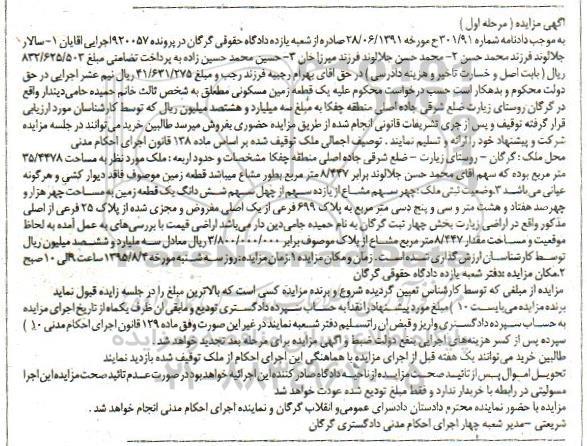 آگهی مزایده ( مرحله اول )
به موجب دادنامه شماره ۳۰۱/۹۱ح مورخه ۲۸/۰۶/۱۳۹۱ صادره از شعبه یازده دادگاه حقوقی گرگان در پرونده ۹۲۰۰۵۷ اجرایی اقایان ۱- سالار
جلالوند فرزند محمد حسن ۲- محمد حسن جلالوند فرزند میرزا خان ۳- حسین محمد حسین زاده به پرداخت تضامنی مبلغ ۸۳۲/۶۲۵/۵۰۳
ریال ( بابت اصل و خسارت تاخیر و هزینه دادرسی ) در حق اقای بهرام رجبیه فرزند رجب و مبلغ ۴۱/۶۳۱/۲۷۵ ریال نیم عشر اجرایی در حق
دولت محکوم و بدهکار است حسب درخواست محکوم علیه یک قطعه زمین مسکونی متعلق به شخص ثالث خانم حمیده حامی دیندار واقع
در گرگان روستای زیارت ضلع شرقی جاده اصلی منطقه چفکا به مبلغ سه میلیارد و هشتصد میلیون ریال که توسط کارشناسان مورد ارزیابی
قرار گرفته توقیف و پس از جری تشریفات قانونی انجام شده از طریق مزایده حضوری بفروش میرسد طالبین خرید می توانند در جلسه مزایده
شرکت و پیشنهاد خود را ارائه و تسلیم نمایند . توصیف اجمالی ملک توقیف شده بر اساس ماده ۱۳۸ قانون اجرای احکام مدنی
محل ملک : گرگان - روستای زیارت - ضلع شرقی جاده اصلی منطقه چفکا مشخصات و حدود اربعه : ملک مورد نظر به مساحت ۳۵/۴۴۷۸
متر مربع بوده که سهم آقای محمد حسن جلالوند برابر ۸/۴۴۷ متر مربع بطور مشاع میباشد قطعه زمین موصوف فاقد دیوار کشی و هرگونه
عیانی می باشد ۳.وضعیت ثبتی ملک :چهر سهم مشاع از یازده سهم از چهل سهم شش دانگ یک قطعه زمین به مساحت چهر هزار و
چهر صد هفتاد و هشت متر و سی و پنج دسی متر مربع به پلاک ۶۹۹ فرعی از یک اصلی مفروض و مجزی شده از پلاک ۲۵ فرعی از اصلی
مذکور واقع در اراضی زیارت بخش چهار ثبت گرگان به نام حمیده جامی دین دار می باشد اراضی قیمت با بررسی های به عمل آمده به لحاظ
موقعیت و مساحت مقدار ۸/۴۴۷ متر مربع مشاع از پلاک موصوف برابر ۳/۸۰۰/۰۰۰/۰۰۰ ریال معادل سه میلیارد و ششصد میلیون ریال
توسط کارشناسان ارزش گذاری شده است . زمان و مکان مزایده ۱.زمان مزایده :روز سه شنبه مورخه ۱۳۹۵/۸/۴ ساعت ۹ الی ۱۰ صبح
۲.مکان مزایده :دفتر شعبه یازده دادگاه حقوقی گرگان
مزایده از مبلغی که توسط کارشناس تعیین گردیده شروع و برنده مزایده کسی است که بالاترین مبلغ را در جلسه زایده قبول نماید
برنده مزایده می بایست ۱۰ ) مبلغ مورد پیشنهاد را نقدا به حساب سپرده دادگستری تودیع و مابقی ان ظرف یکماه از تاریخ اجرای مزایده
به حساب سپرده دادگستری واریز و قبض ان را تسلیم دفتر شعبه نمایند در غیر این صورت وفق ماده ۱۲۹ قانون اجرای احکام مدنی ۱۰ )
سپرده پس از کسر هزینه های اجرایی بنفع دولت ضبط و اگهی مزایده برای مرحله بعد تجدید خواهد شد
طالبین خرید می توانند یک هفته قبل از اجرای مزایده با هماهنگی این اجرای احکام از ملک توقیف شده بازدید نمایند
تحویل اموال پس از تائید صحت مزایده از ناحیه دادگاه صادر کننده این اجرائیه خواهد بود در صورت عدم تائید صحت مزایده این اجرا
مسولیتی در رابطه با خریدار ندارد و فقط مبلغ تودیع شده عودت خواهد شد
مزایده با حضور نماینده محترم دادستان دادسرای عمومی و انقلاب گرگان و نماینده اجرای احکام مدنی انجام خواهد شد .
شریعتی -مدیر شعبه چهار اجرای احکام مدنی دادگستری گرگان